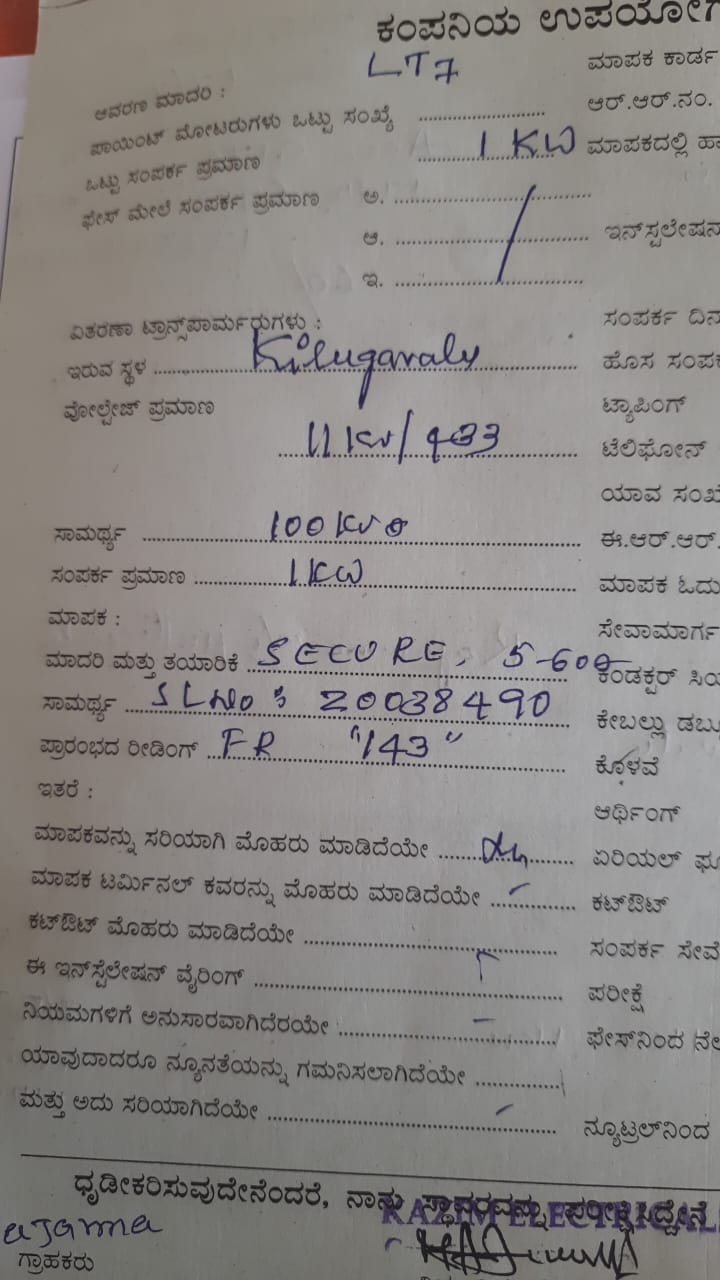 ಕಂಪನಿಯ ಉಪಯೋಗ
LT7 ಮಾಪಕ ಕಾರ್ಡ
ಆವರಣ ಮಾದರಿ :
ಪಾಯಿಂಟ್ ಮೋಟರುಗಳು ಒಟ್ಟು ಸಂಖ್ಯೆ .................... ಆರ್.ಆರ್.ನಂ.
ಒಟ್ಟು ಸಂಪರ್ಕ ಪ್ರಮಾಣ 1 KW ಮಾಪಕದಲ್ಲಿ
ಫೇಸ್ ಮೇಲೆ ಸಂಪರ್ಕ ಪ್ರಮಾಣ ಅ. ....................
ಆ. .................... ಇನ್‌ಸ್ಟಲೇಷನ
ಇ. ....................
ವಿತರಣಾ ಟ್ರಾನ್ಸ್‌ಪಾರ್ಮರುಗಳು : ಸಂಪರ್ಕ ದಿನ
ಇರುವ ಸ್ಥಳ Kilugavaly ಹೊಸ ಸಂಪರ್ಕ
ವೋಲ್ಟೇಜ್ ಪ್ರಮಾಣ ಟ್ಯಾಪಿಂಗ್
11 KV/433 ಟೆಲಿಫೋನ್
ಯಾವ ಸಂಖ್ಯೆ
ಸಾಮರ್ಥ್ಯ 100 KVA ಈ.ಆರ್.ಆರ್.
ಸಂಪರ್ಕ ಪ್ರಮಾಣ 1 KW ಮಾಪಕ ಓದು
ಮಾಪಕ : ಸೇವಾಮಾರ್ಗ
ಮಾದರಿ ಮತ್ತು ತಯಾರಿಕೆ SECURE, 5-60A ಕಂಡಕ್ಟರ್
ಸಾಮರ್ಥ್ಯ SLNO : 20038490 ಕೇಬಲ್ಲು
ಪ್ರಾರಂಭದ ರೀಡಿಂಗ್ FR "143" ಕೊಳವೆ
ಇತರೆ : ಆರ್ಥಿಂಗ್
ಮಾಪಕವನ್ನು ಸರಿಯಾಗಿ ಮೊಹರು ಮಾಡಿದೆಯೇ .................... ಏರಿಯಲ್
ಮಾಪಕ ಟರ್ಮಿನಲ್ ಕವರನ್ನು ಮೊಹರು ಮಾಡಿದೆಯೇ .................... ಕಟ್‌ಔಟ್
ಕಟ್‌ಔಟ್ ಮೊಹರು ಮಾಡಿದೆಯೇ .................... ಸಂಪರ್ಕ ಸೇವೆ
ಈ ಇನ್‌ಸ್ಪೆಲೇಷನ್ ವೈರಿಂಗ್ .................... ಪರೀಕ್ಷೆ
ನಿಯಮಗಳಿಗೆ ಅನುಸಾರವಾಗಿದೆರಯೇ .................... ಫೇಸ್‌ನಿಂದ
ಯಾವುದಾದರೂ ನ್ಯೂನತೆಯನ್ನು ಗಮನಿಸಲಾಗಿದೆಯೇ ....................
ಮತ್ತು ಅದು ಸರಿಯಾಗಿದೆಯೇ .................... ನ್ಯೂಟ್ರಲ್‌ನಿಂದ
ಧೃಡೀಕರಿಸುವುದೇನೆಂದರೆ, ನಾನು ಸ್ಥಾವರವನ್ನು ಪರೀಕ್ಷಿಸಿದ್ದೇನೆ
ELECTRICAL
ಗ್ರಾಹಕರು